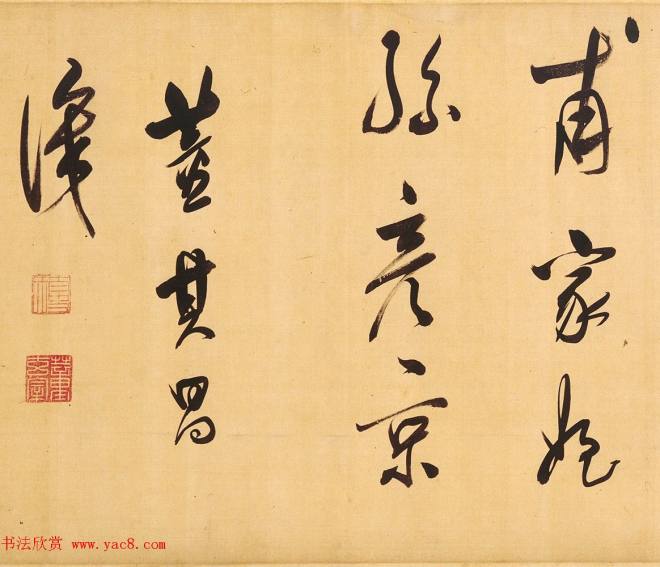 甫家姪
孫彥京
董其昌
識
书法欣赏 www.yac8.com